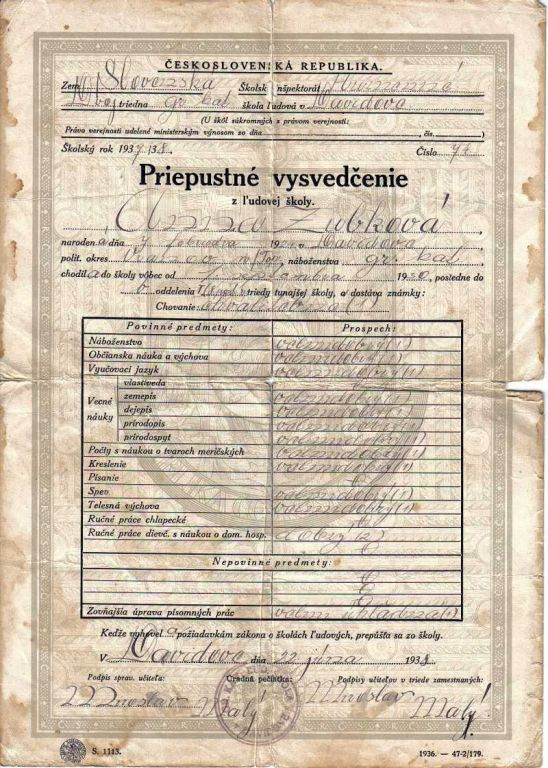 ČESKOSLOVENSKÁ REPUBLIKA.
Zem Slovenská Školsk inšpektorát Humenné
Dvojtriedna gr. kat. škola ľudová v Davidova
(U škôl súkromných s právom verejnosti:
Právo verejnosti udelené ministerským výnosom zo dňa , čís. )
Školský rok 1937/38. Číslo 74
Priepustné vysvedčenie
z ľudovej školy.
Anna Zubková,
naroden á dňa 7. februára 1924 v Davidova
polit. okres Vranov n/Top., náboženstva gr. kat.,
chodil a do školy vôbec od 1. septembra 1930, posledne do
6 oddelenia triedy tunajšej školy, a dostáva známky:
Chovanie: (1)
Povinné predmety: Prospech:
Náboženstvo velmi dobrý (1)
Občianska náuka a výchova velmi dobrý (1)
Vyučovací jazyk velmi dobrý (1)
Vecné náuky
vlastiveda
zemepis velmi dobrý (1)
dejepis velmi dobrý (1)
prírodopis velmi dobrý (1)
prírodospyt velmi dobrý (1)
Počty s náukou o tvaroch meričských velmi dobrý (1)
Kreslenie velmi dobrý (1)
Písanie
Spev velmi dobrý (1)
Telesná výchova velmi dobrý (1)
Ručné práce chlapecké
Ručné práce dievč. s náukou o dom. hosp. dobrý (2)
Nepovinné predmety:
Zovňajšia úprava písomných prác velmi úhladná (1)
Keďže vyhovel a požiadavkám zákona o školách ľudových, prepúšťa sa zo školy.
V Davidove, dňa 22. júna 1938
Podpis správ. učiteľa: Úradná pečiatka: Podpisy učiteľov v triede zamestnaných:
Miroslav Malý Miroslav Malý
S. 1113. 1936. — 47-2/179.